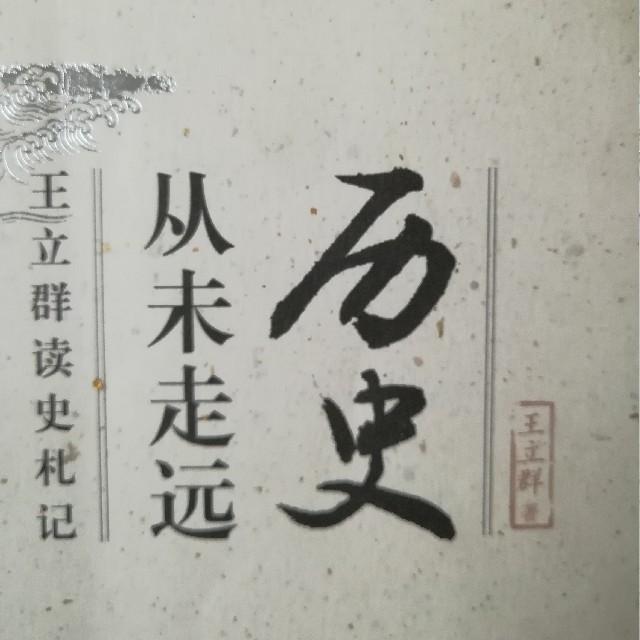 历史
从未走远
王立群读史札记
王立群